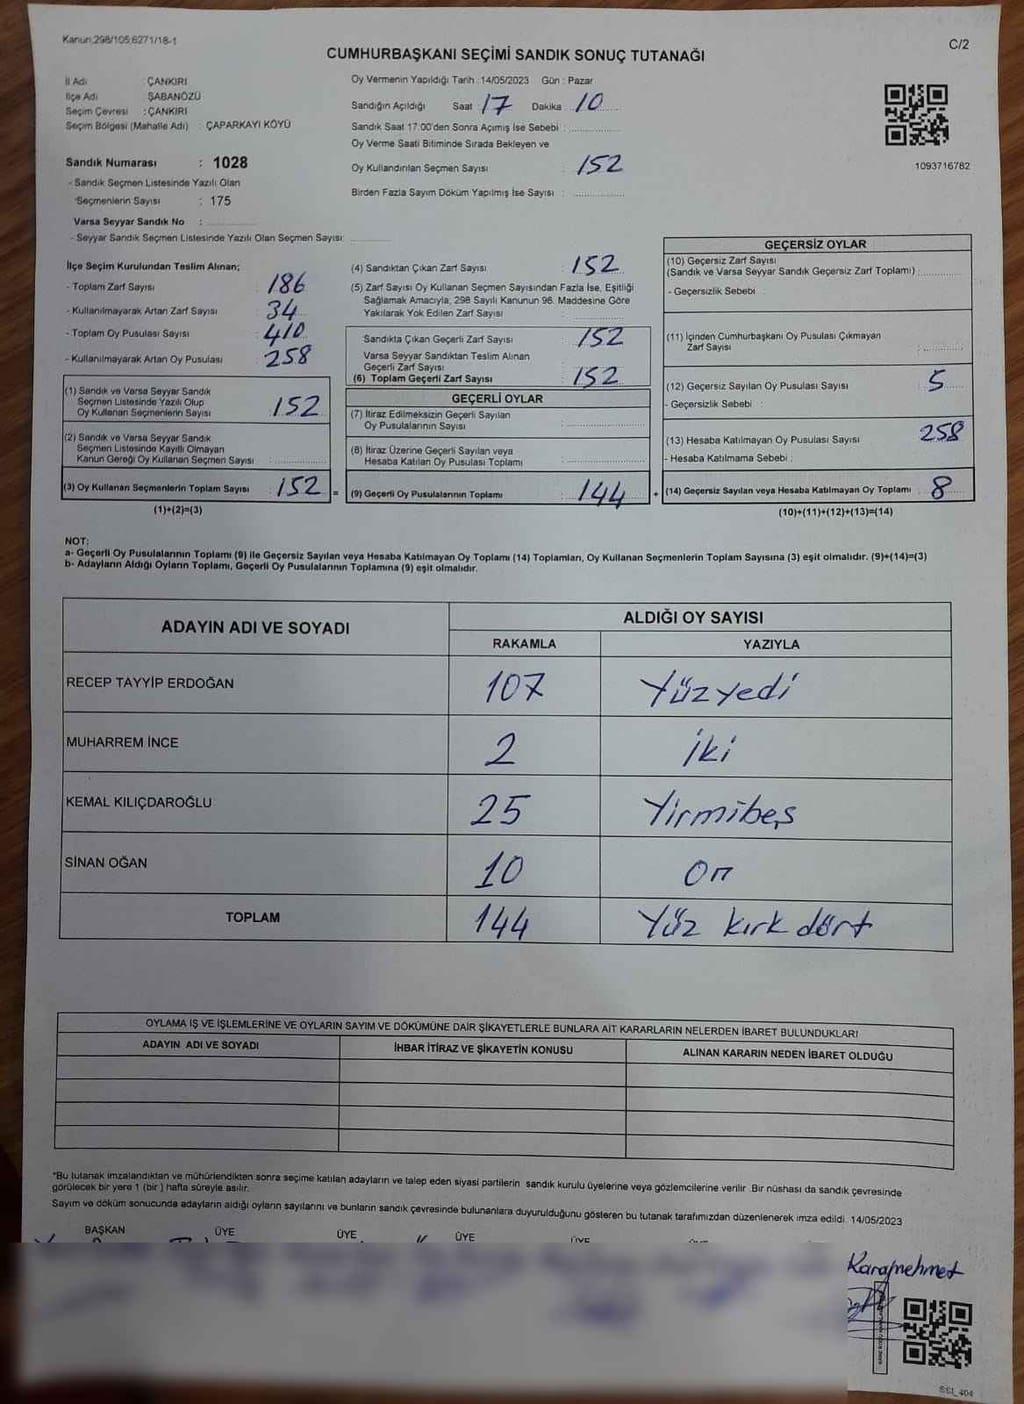 Kanun:298/105;6271/18-1
C/2
CUMHURBAŞKANI SEÇİMİ SANDIK SONUÇ TUTANAĞI
İl Adı : ÇANKIRI
İlçe Adı : ŞABANÖZÜ
Seçim Çevresi : ÇANKIRI
Seçim Bölgesi (Mahalle Adı) : ÇAPARKAYI KÖYÜ
Sandık Numarası : 1028
- Sandık Seçmen Listesinde Yazılı Olan
Seçmenlerin Sayısı : 175
Varsa Seyyar Sandık No :
- Seyyar Sandık Seçmen Listesinde Yazılı Olan Seçmen Sayısı:
Oy Vermenin Yapıldığı Tarih : 14/05/2023 Gün : Pazar
Sandığın Açıldığı Saat 17 Dakika 10
Sandık Saat 17:00'den Sonra Açımış İse Sebebi :
Oy Verme Saati Bitiminde Sırada Bekleyen ve
Oy Kullandırılan Seçmen Sayısı : 152
Birden Fazla Sayım Döküm Yapılmış İse Sayısı :
1093716782
İlçe Seçim Kurulundan Teslim Alınan;
- Toplam Zarf Sayısı : 186
- Kullanılmayarak Artan Zarf Sayısı : 34
- Toplam Oy Pusulası Sayısı : 410
- Kullanılmayarak Artan Oy Pusulası : 258
(1) Sandık ve Varsa Seyyar Sandık
Seçmen Listesinde Yazılı Olup
Oy Kullanan Seçmenlerin Sayısı : 152
(2) Sandık ve Varsa Seyyar Sandık
Seçmen Listesinde Kayıtlı Olmayan
Kanun Gereği Oy Kullanan Seçmen Sayısı :
(3) Oy Kullanan Seçmenlerin Toplam Sayısı : 152 =
(1)+(2)=(3)
(4) Sandıktan Çıkan Zarf Sayısı : 152
(5) Zarf Sayısı Oy Kullanan Seçmen Sayısından Fazla İse, Eşitliği
Sağlamak Amacıyla, 298 Sayılı Kanunun 98. Maddesine Göre
Yakılarak Yok Edilen Zarf Sayısı :
Sandıkta Çıkan Geçerli Zarf Sayısı : 152
Varsa Seyyar Sandıktan Teslim Alınan
Geçerli Zarf Sayısı :
(6) Toplam Geçerli Zarf Sayısı : 152
GEÇERLİ OYLAR
(7) İtiraz Edilmeksizin Geçerli Sayılan
Oy Pusulalarının Sayısı :
(8) İtiraz Üzerine Geçerli Sayılan veya
Hesaba Katılan Oy Pusulası Toplamı :
(9) Geçerli Oy Pusulalarının Toplamı : 144 +
GEÇERSİZ OYLAR
(10) Geçersiz Zarf Sayısı
(Sandık ve Varsa Seyyar Sandık Geçersiz Zarf Toplamı) :
- Geçersizlik Sebebi :
(11) İçinden Cumhurbaşkanı Oy Pusulası Çıkmayan
Zarf Sayısı :
(12) Geçersiz Sayılan Oy Pusulası Sayısı : 5
- Geçersizlik Sebebi :
(13) Hesaba Katılmayan Oy Pusulası Sayısı : 258
- Hesaba Katılmama Sebebi :
(14) Geçersiz Sayılan veya Hesaba Katılmayan Oy Toplamı : 8
(10)+(11)+(12)+(13)=(14)
NOT:
a- Geçerli Oy Pusulalarının Toplamı (9) ile Geçersiz Sayılan veya Hesaba Katılmayan Oy Toplamı (14) Toplamları, Oy Kullanan Seçmenlerin Toplam Sayısına (3) eşit olmalıdır. (9)+(14)=(3)
b- Adayların Aldığı Oyların Toplamı, Geçerli Oy Pusulalarının Toplamına (9) eşit olmalıdır.
ADAYIN ADI VE SOYADI ALDIĞI OY SAYISI
RAKAMLA YAZIYLA
RECEP TAYYİP ERDOĞAN 107 Yüzyedi
MUHARREM İNCE 2 iki
KEMAL KILIÇDAROĞLU 25 Yirmibeş
SİNAN OĞAN 10 On
TOPLAM 144 Yüz kırk dört
OYLAMA İŞ VE İŞLEMLERİNE VE OYLARIN SAYIM VE DÖKÜMÜNE DAİR ŞİKAYETLERLE BUNLARA AİT KARARLARIN NELERDEN İBARET BULUNDUKLARI
ADAYIN ADI VE SOYADI İHBAR İTİRAZ VE ŞİKAYETİN KONUSU ALINAN KARARIN NEDEN İBARET OLDUĞU
*Bu tutanak imzalandıktan ve mühürlendikten sonra seçime katılan adayların ve talep eden siyasi partilerin sandık kurulu üyelerine veya gözlemcilerine verilir .Bir nüshası da sandık çevresinde
görülecek bir yere 1 (bir ) hafta süreyle asılır.
Sayım ve döküm sonucunda adayların aldığı oyların sayılarını ve bunların sandık çevresinde bulunanlara duyurulduğunu gösteren bu tutanak tarafımızdan düzenlenerek imza edildi. 14/05/2023
BAŞKAN ÜYE ÜYE ÜYE
Karamehmet